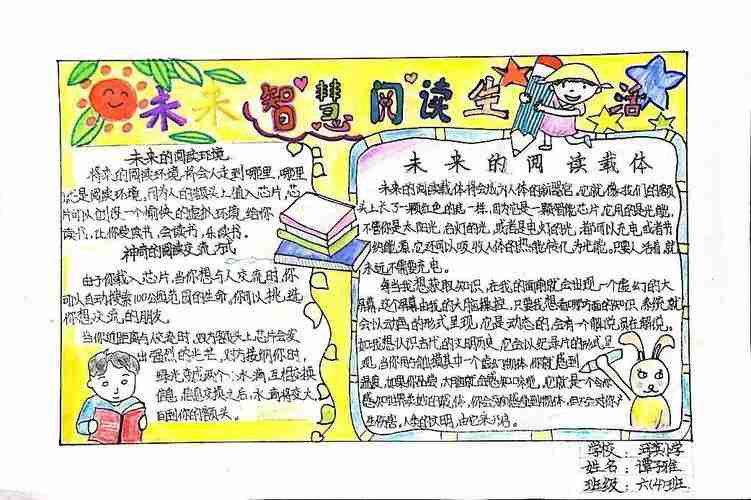 未来智慧阅读生活
未来的阅读环境
将来的阅读环境将会人走到哪里,哪里
就是阅读环境,因为人的额头上植入芯片,芯
片可以创设一个愉快的虚拟环境给你
读书,让你爱读书、会读书、乐读书。
神奇的阅读交流方式
由于你载入芯片,当你想与人交流时,你
可以自动搜索100公里范围的生命,你可以挑选
你想交流的朋友。
当你近距离与人交流时,双方额头上芯片会发
出强烈的光芒,对方接纳你时,
绿光变成两个小水滴,互相交换
信息,信息交换之后,水滴将变大,
回到你的额头。
未来的阅读载体
未来的阅读载体将会成为人体的新器官,它就像我们的额
头上长了一颗红色的痣一样,因为它是一颗智能芯片,它用的是光能,
不管你是太阳光,台灯的光,或者是电灯的光,都可以充电,或者节
约能源,它还可以吸收人体的热能转化为光能。只要人活着,就
永远不需要充电。
每当我想获取知识,在我的面前就会出现一个虚幻的大
屏幕,这个屏幕由我的大脑操控,只要我想看哪方面的知识,系统就
会以动画的形式呈现,它是动态的,会有一个解说员在解说。
如我想认识古代的文明历史,它会以纪录片的形式呈
现,当你用手触摸其中一个虚幻物体,你就感到
温度,如果你
感知世界奥妙的载体,你会
生伤害,人类的文明,由它来
学校:小学
姓名:谭子雅
班级:六(4)班